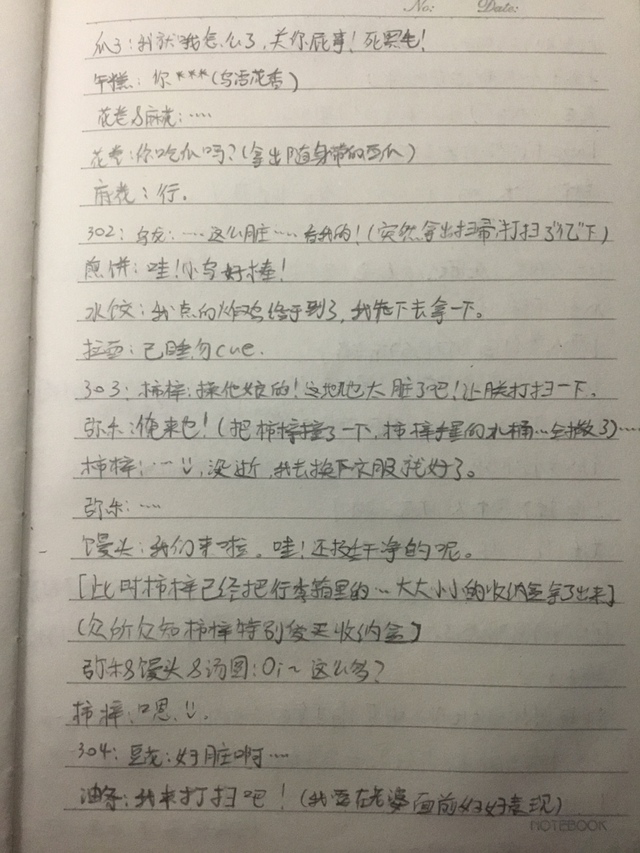 No: Date:
瓜子:我就嗑怎么了,关你屁事!死黑毛!
年糕:你***(鸟语花香)
花卷&麻花:....
花卷:你吃瓜吗?(拿出随身带的西瓜)
麻花:行.
302:乌龙:....这么脏....看我的!(突然拿出扫帚打扫了"亿"下)
煎饼:哇!小乌好棒!
水饺:我点的炸鸡终于到了,我先下去拿一下。
拉面:已睡勿cue.
303:柿梓:操他娘的!这地也太脏了吧!让朕打扫一下.
弥乐:俺来也!(把柿梓撞了一下,柿梓手里的水桶...全撒了)....
柿梓:...没逝,我去换下衣服就好了。
弥乐:....
馒头:我们来啦。哇!还挺干净的呢。
[此时柿梓已经把行李箱里的...大大小小的收纳盒拿了出来]
(众所众知柿梓特别爱买收纳盒)
弥乐&馒头&汤圆:Oi~这么多?
柿梓:嗯.
304:豆龙:好脏啊....
油条:我来打扫吧!(我要在老婆面前好好表现)
NOTEBOOK